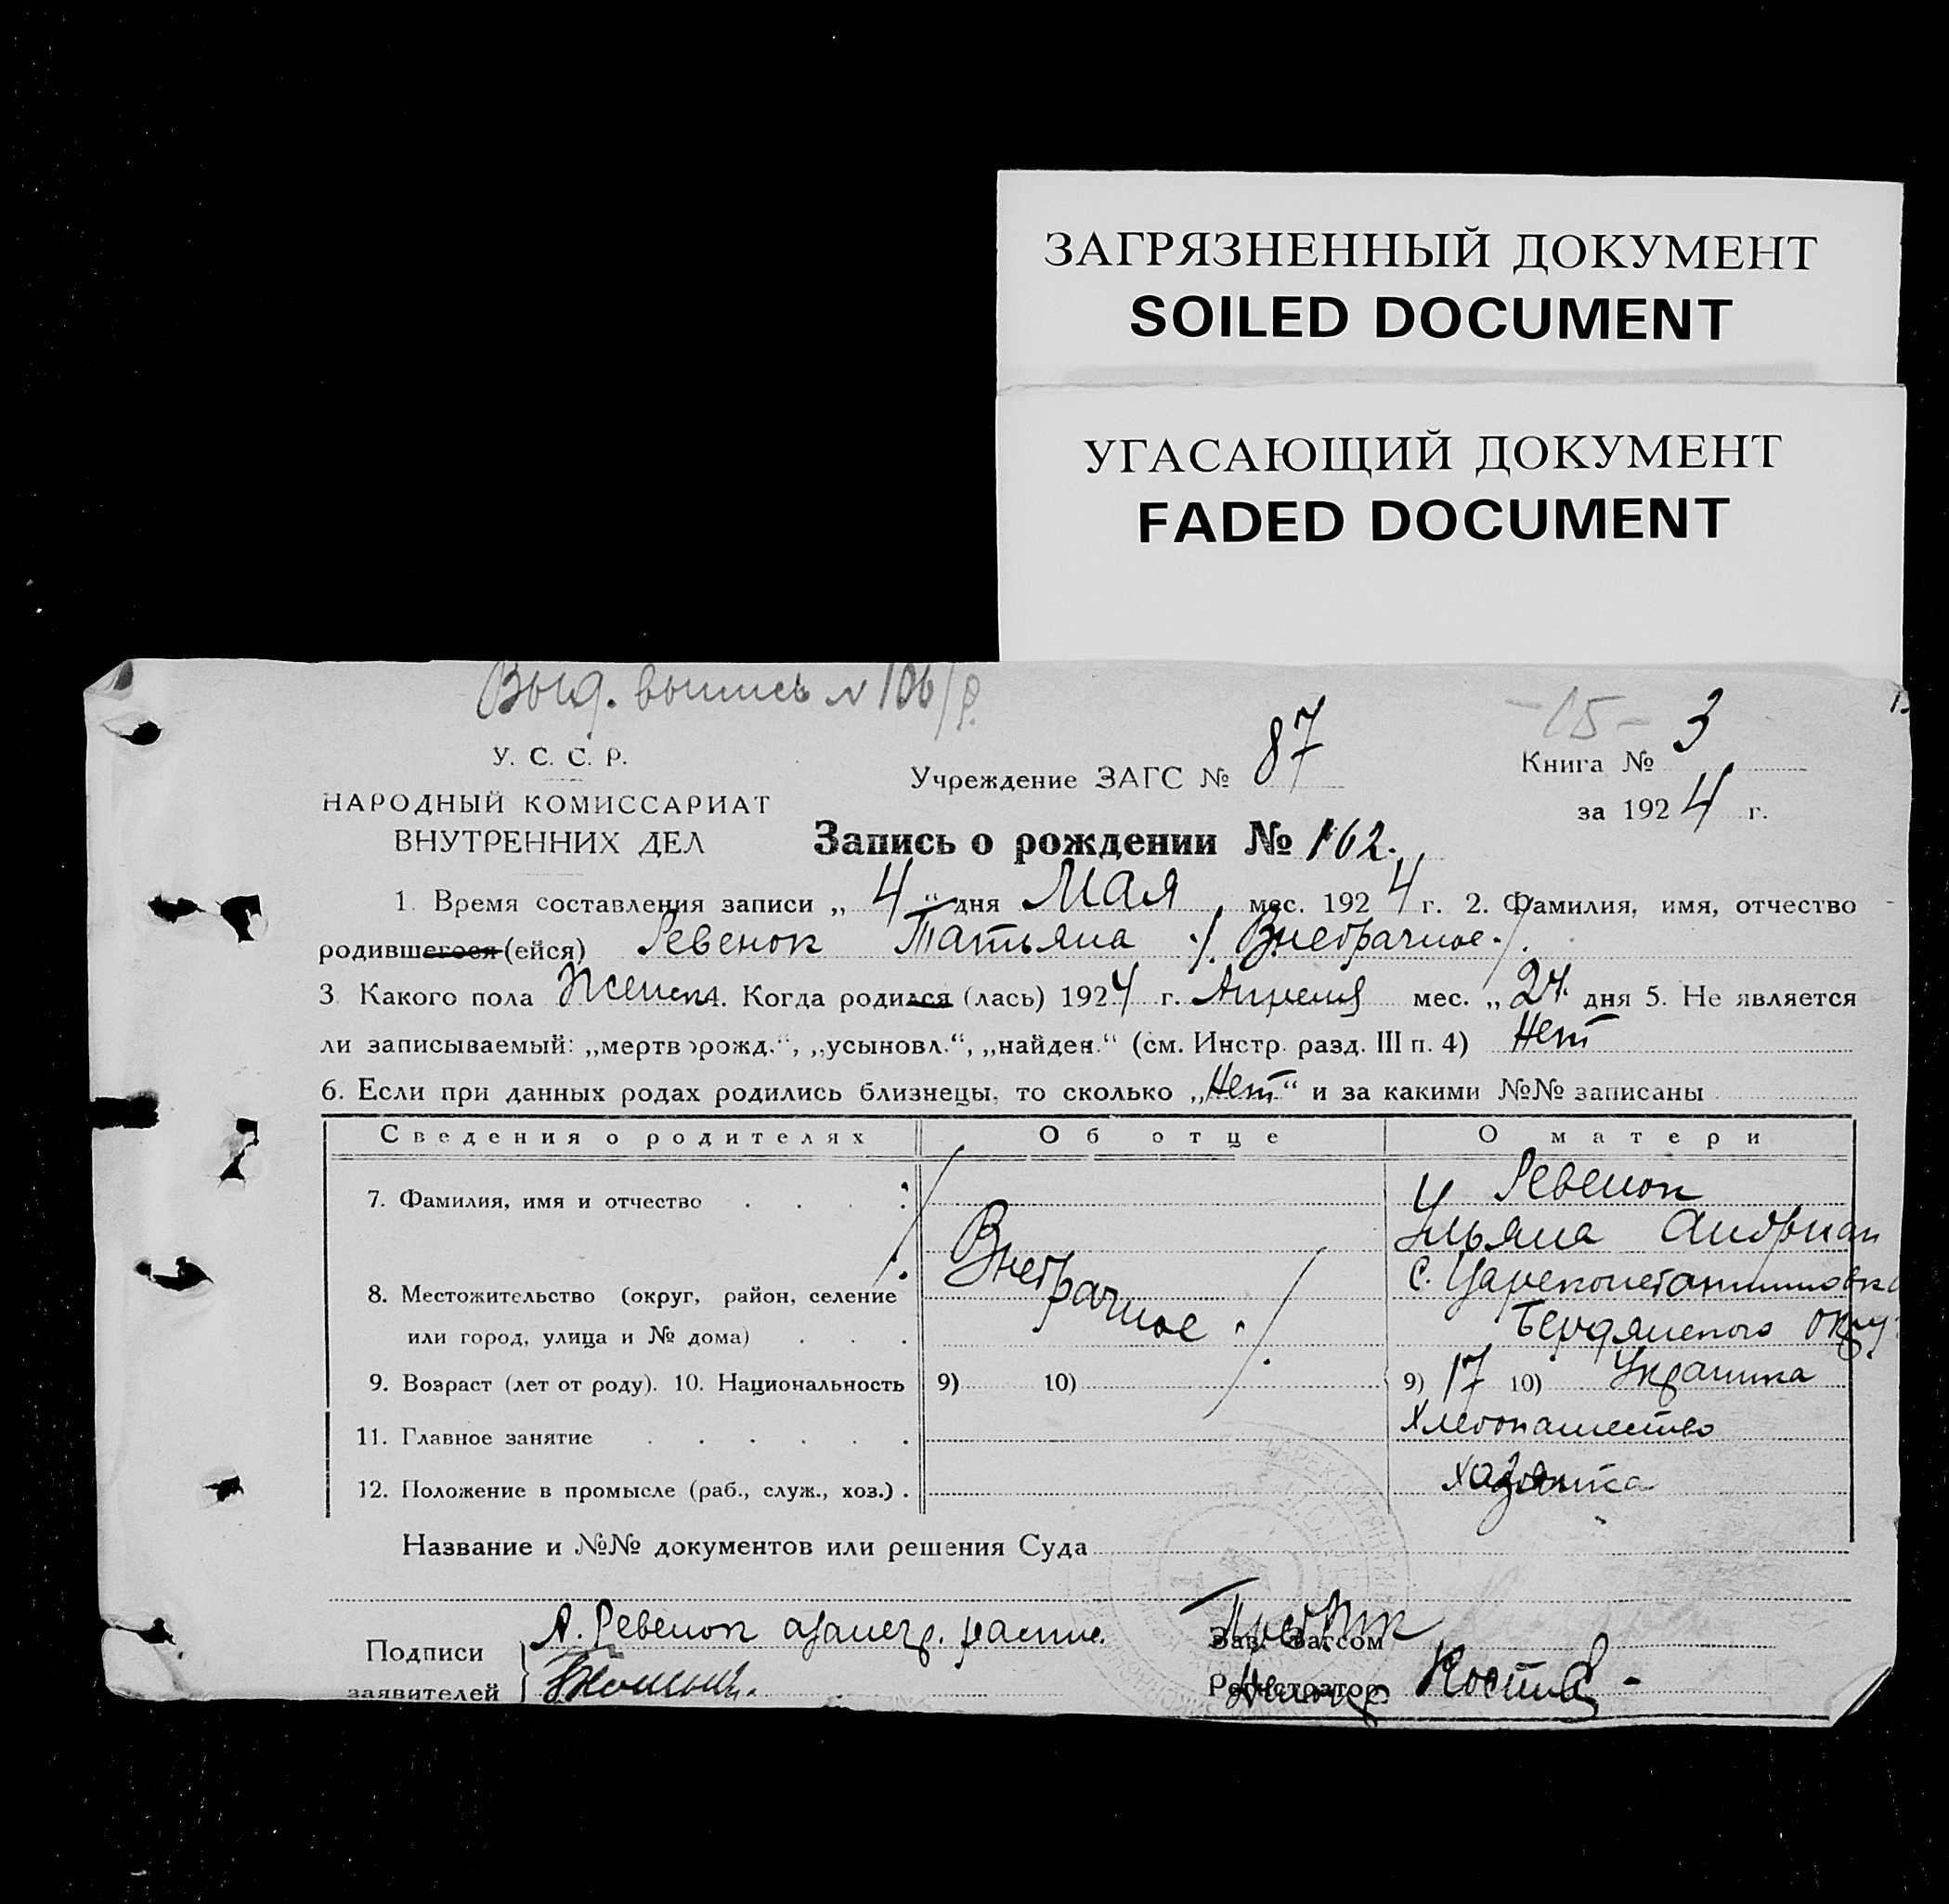 ЗАГРЯЗНЕННЫЙ ДОКУМЕНТ
SOILED DOCUMENT
УГАСАЮЩИЙ ДОКУМЕНТ
FADED DOCUMENT
Выд. выпись № 106/р.
-15- 3
У. С. С. Р.
Учреждение ЗАГС № 87
Книга №
НАРОДНЫЙ КОМИССАРИАТ
ВНУТРЕННИХ ДЕЛ
за 1924 г.
Запись о рождении № 162.
1. Время составления записи „4“ дня Мая мес. 1924 г. 2. Фамилия, имя, отчество
родившегося (ейся) Ревенок Татьяна ./. Внебрачное ./.
3 Какого пола Женск 4. Когда родился (лась) 1924 г. Апреля мес. „24 дня 5. Не является
ли записываемый: „мертворожд.“, „усыновл.“, „найден.“ (см. Инстр. разд. III п. 4) Нет
6. Если при данных родах родились близнецы, то сколько „Нет“ и за какими №№ записаны
Сведения о родителях Об отце О матери
7. Фамилия, имя и отчество Ревенок
Ульяна Андриан
8. Местожительство (округ, район, селение Внебрачное с. Цареконстантиновка
или город, улица и № дома) Бердянского окру
9. Возраст (лет от роду). 10. Национальность 9) 10) 9) 17 10) Украинка
11. Главное занятие Хлебопашество
12. Положение в промысле (раб., служ., хоз.) хозяйка
Название и №№ документов или решения Суда
Подписи А. Ревенок Зав. Загсом
заявителей Регистратор